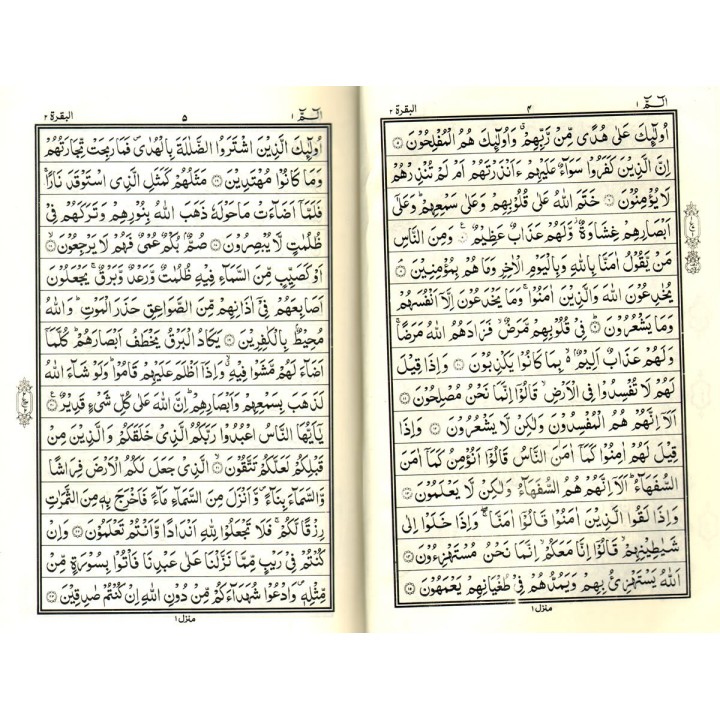 الٓمّٓ ١
۴
البقرة ٢
اُولٰٓئِكَ عَلٰى هُدًى مِّنْ رَّبِّهِمْ ۗ وَاُولٰٓئِكَ هُمُ الْمُفْلِحُوْنَ ۝
اِنَّ الَّذِيْنَ كَفَرُوْا سَوَآءٌ عَلَيْهِمْ ءَاَنْذَرْتَهُمْ اَمْ لَمْ تُنْذِرْهُمْ
لَا يُؤْمِنُوْنَ ۝ خَتَمَ اللّٰهُ عَلٰى قُلُوْبِهِمْ وَعَلٰى سَمْعِهِمْ ۗ وَعَلٰٓى
اَبْصَارِهِمْ غِشَاوَةٌ ۚ وَّلَهُمْ عَذَابٌ عَظِيْمٌ ۝ وَمِنَ النَّاسِ
مَنْ يَّقُوْلُ اٰمَنَّا بِاللّٰهِ وَبِالْيَوْمِ الْاٰخِرِ وَمَا هُمْ بِمُؤْمِنِيْنَ ۝
يُخٰدِعُوْنَ اللّٰهَ وَالَّذِيْنَ اٰمَنُوْا ۚ وَمَا يَخْدَعُوْنَ اِلَّآ اَنْفُسَهُمْ
وَمَا يَشْعُرُوْنَ ۝ فِيْ قُلُوْبِهِمْ مَّرَضٌ ۙ فَزَادَهُمُ اللّٰهُ مَرَضًا ۚ
وَلَهُمْ عَذَابٌ اَلِيْمٌ ۢ بِمَا كَانُوْا يَكْذِبُوْنَ ۝ وَاِذَا قِيْلَ
لَهُمْ لَا تُفْسِدُوْا فِي الْاَرْضِ ۙ قَالُوْٓا اِنَّمَا نَحْنُ مُصْلِحُوْنَ ۝
اَلَآ اِنَّهُمْ هُمُ الْمُفْسِدُوْنَ وَلٰكِنْ لَّا يَشْعُرُوْنَ ۝ وَاِذَا
قِيْلَ لَهُمْ اٰمِنُوْا كَمَآ اٰمَنَ النَّاسُ قَالُوْٓا اَنُؤْمِنُ كَمَآ اٰمَنَ
السُّفَهَآءُ ۗ اَلَآ اِنَّهُمْ هُمُ السُّفَهَآءُ وَلٰكِنْ لَّا يَعْلَمُوْنَ ۝
وَاِذَا لَقُوا الَّذِيْنَ اٰمَنُوْا قَالُوْٓا اٰمَنَّا ۚ وَاِذَا خَلَوْا اِلٰى
شَيٰطِيْنِهِمْ ۙ قَالُوْٓا اِنَّا مَعَكُمْ ۙ اِنَّمَا نَحْنُ مُسْتَهْزِءُوْنَ ۝
اَللّٰهُ يَسْتَهْزِئُ بِهِمْ وَيَمُدُّهُمْ فِيْ طُغْيَانِهِمْ يَعْمَهُوْنَ ۝
منزل ١
الٓمّٓ ١
۵
البقرة ٢
اُولٰٓئِكَ الَّذِيْنَ اشْتَرَوُا الضَّلٰلَةَ بِالْهُدٰى ۠ فَمَا رَبِحَتْ تِّجَارَتُهُمْ
وَمَا كَانُوْا مُهْتَدِيْنَ ۝ مَثَلُهُمْ كَمَثَلِ الَّذِى اسْتَوْقَدَ نَارًا ۚ
فَلَمَّآ اَضَآءَتْ مَا حَوْلَهٗ ذَهَبَ اللّٰهُ بِنُوْرِهِمْ وَتَرَكَهُمْ فِيْ
ظُلُمٰتٍ لَّا يُبْصِرُوْنَ ۝ صُمٌّ ۢ بُكْمٌ عُمْيٌ فَهُمْ لَا يَرْجِعُوْنَ ۝
اَوْ كَصَيِّبٍ مِّنَ السَّمَآءِ فِيْهِ ظُلُمٰتٌ وَّرَعْدٌ وَّبَرْقٌ ۚ يَجْعَلُوْنَ
اَصَابِعَهُمْ فِيْٓ اٰذَانِهِمْ مِّنَ الصَّوَاعِقِ حَذَرَ الْمَوْتِ ۗ وَاللّٰهُ
مُحِيْطٌۢ بِالْكٰفِرِيْنَ ۝ يَكَادُ الْبَرْقُ يَخْطَفُ اَبْصَارَهُمْ ۗ كُلَّمَآ
اَضَآءَ لَهُمْ مَّشَوْا فِيْهِ ۙ وَاِذَآ اَظْلَمَ عَلَيْهِمْ قَامُوْا ۗ وَلَوْ شَآءَ اللّٰهُ
لَذَهَبَ بِسَمْعِهِمْ وَاَبْصَارِهِمْ ۗ اِنَّ اللّٰهَ عَلٰى كُلِّ شَيْءٍ قَدِيْرٌ ۝
يٰٓاَيُّهَا النَّاسُ اعْبُدُوْا رَبَّكُمُ الَّذِيْ خَلَقَكُمْ وَالَّذِيْنَ مِنْ
قَبْلِكُمْ لَعَلَّكُمْ تَتَّقُوْنَ ۝ الَّذِيْ جَعَلَ لَكُمُ الْاَرْضَ فِرَاشًا
وَّالسَّمَآءَ بِنَآءً ۠ وَّاَنْزَلَ مِنَ السَّمَآءِ مَآءً فَاَخْرَجَ بِهٖ مِنَ الثَّمَرٰتِ
رِزْقًا لَّكُمْ ۚ فَلَا تَجْعَلُوْا لِلّٰهِ اَنْدَادًا وَّاَنْتُمْ تَعْلَمُوْنَ ۝ وَاِنْ
كُنْتُمْ فِيْ رَيْبٍ مِّمَّا نَزَّلْنَا عَلٰى عَبْدِنَا فَأْتُوْا بِسُوْرَةٍ مِّنْ
مِّثْلِهٖ ۠ وَادْعُوْا شُهَدَآءَكُمْ مِّنْ دُوْنِ اللّٰهِ اِنْ كُنْتُمْ صٰدِقِيْنَ ۝
منزل ١